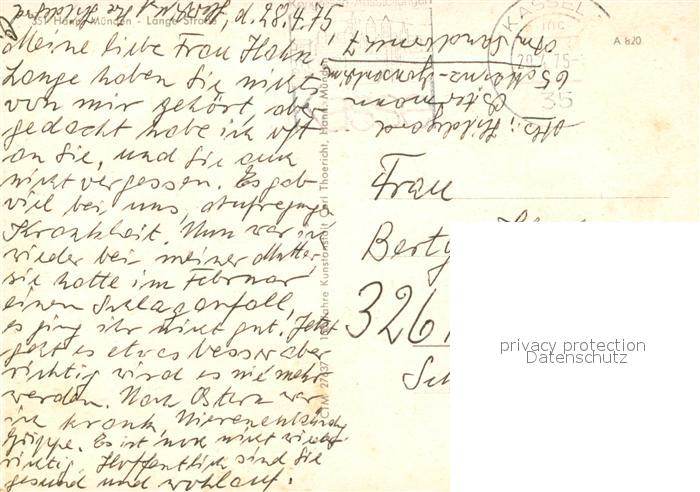 351 Hann. Münden - Lange Straße
d. 28.4.75
Meine liebe Frau Hahn,
Lange haben Sie nichts
von mir gehört, aber
gedacht habe ich oft
an Sie, und Sie auch
nicht vergessen. Es gab
viel bei uns, Aufregung,
Krankheit. Nun war ich
wieder bei meiner Mutter,
sie hatte im Februar
einen Schlaganfall,
es ging ihr nicht gut. Jetzt
geht es etwas besser aber
richtig wird es nie mehr
werden. Nach Ostern war
ich krank, Nierenentzündg
Grippe. Es ist noch nicht wieder
richtig. Hoffentlich sind Sie
gesund und wohlauf.
Jahre Kunstanstalt Carl Thoericht, Hann. Münden
KASSEL
35
A 820
Abs.: Hildegard
65 Mainz-Gonsenheim
Am Sandkreuz 7
Frau
Berty
326
privacy protection
Datenschutz